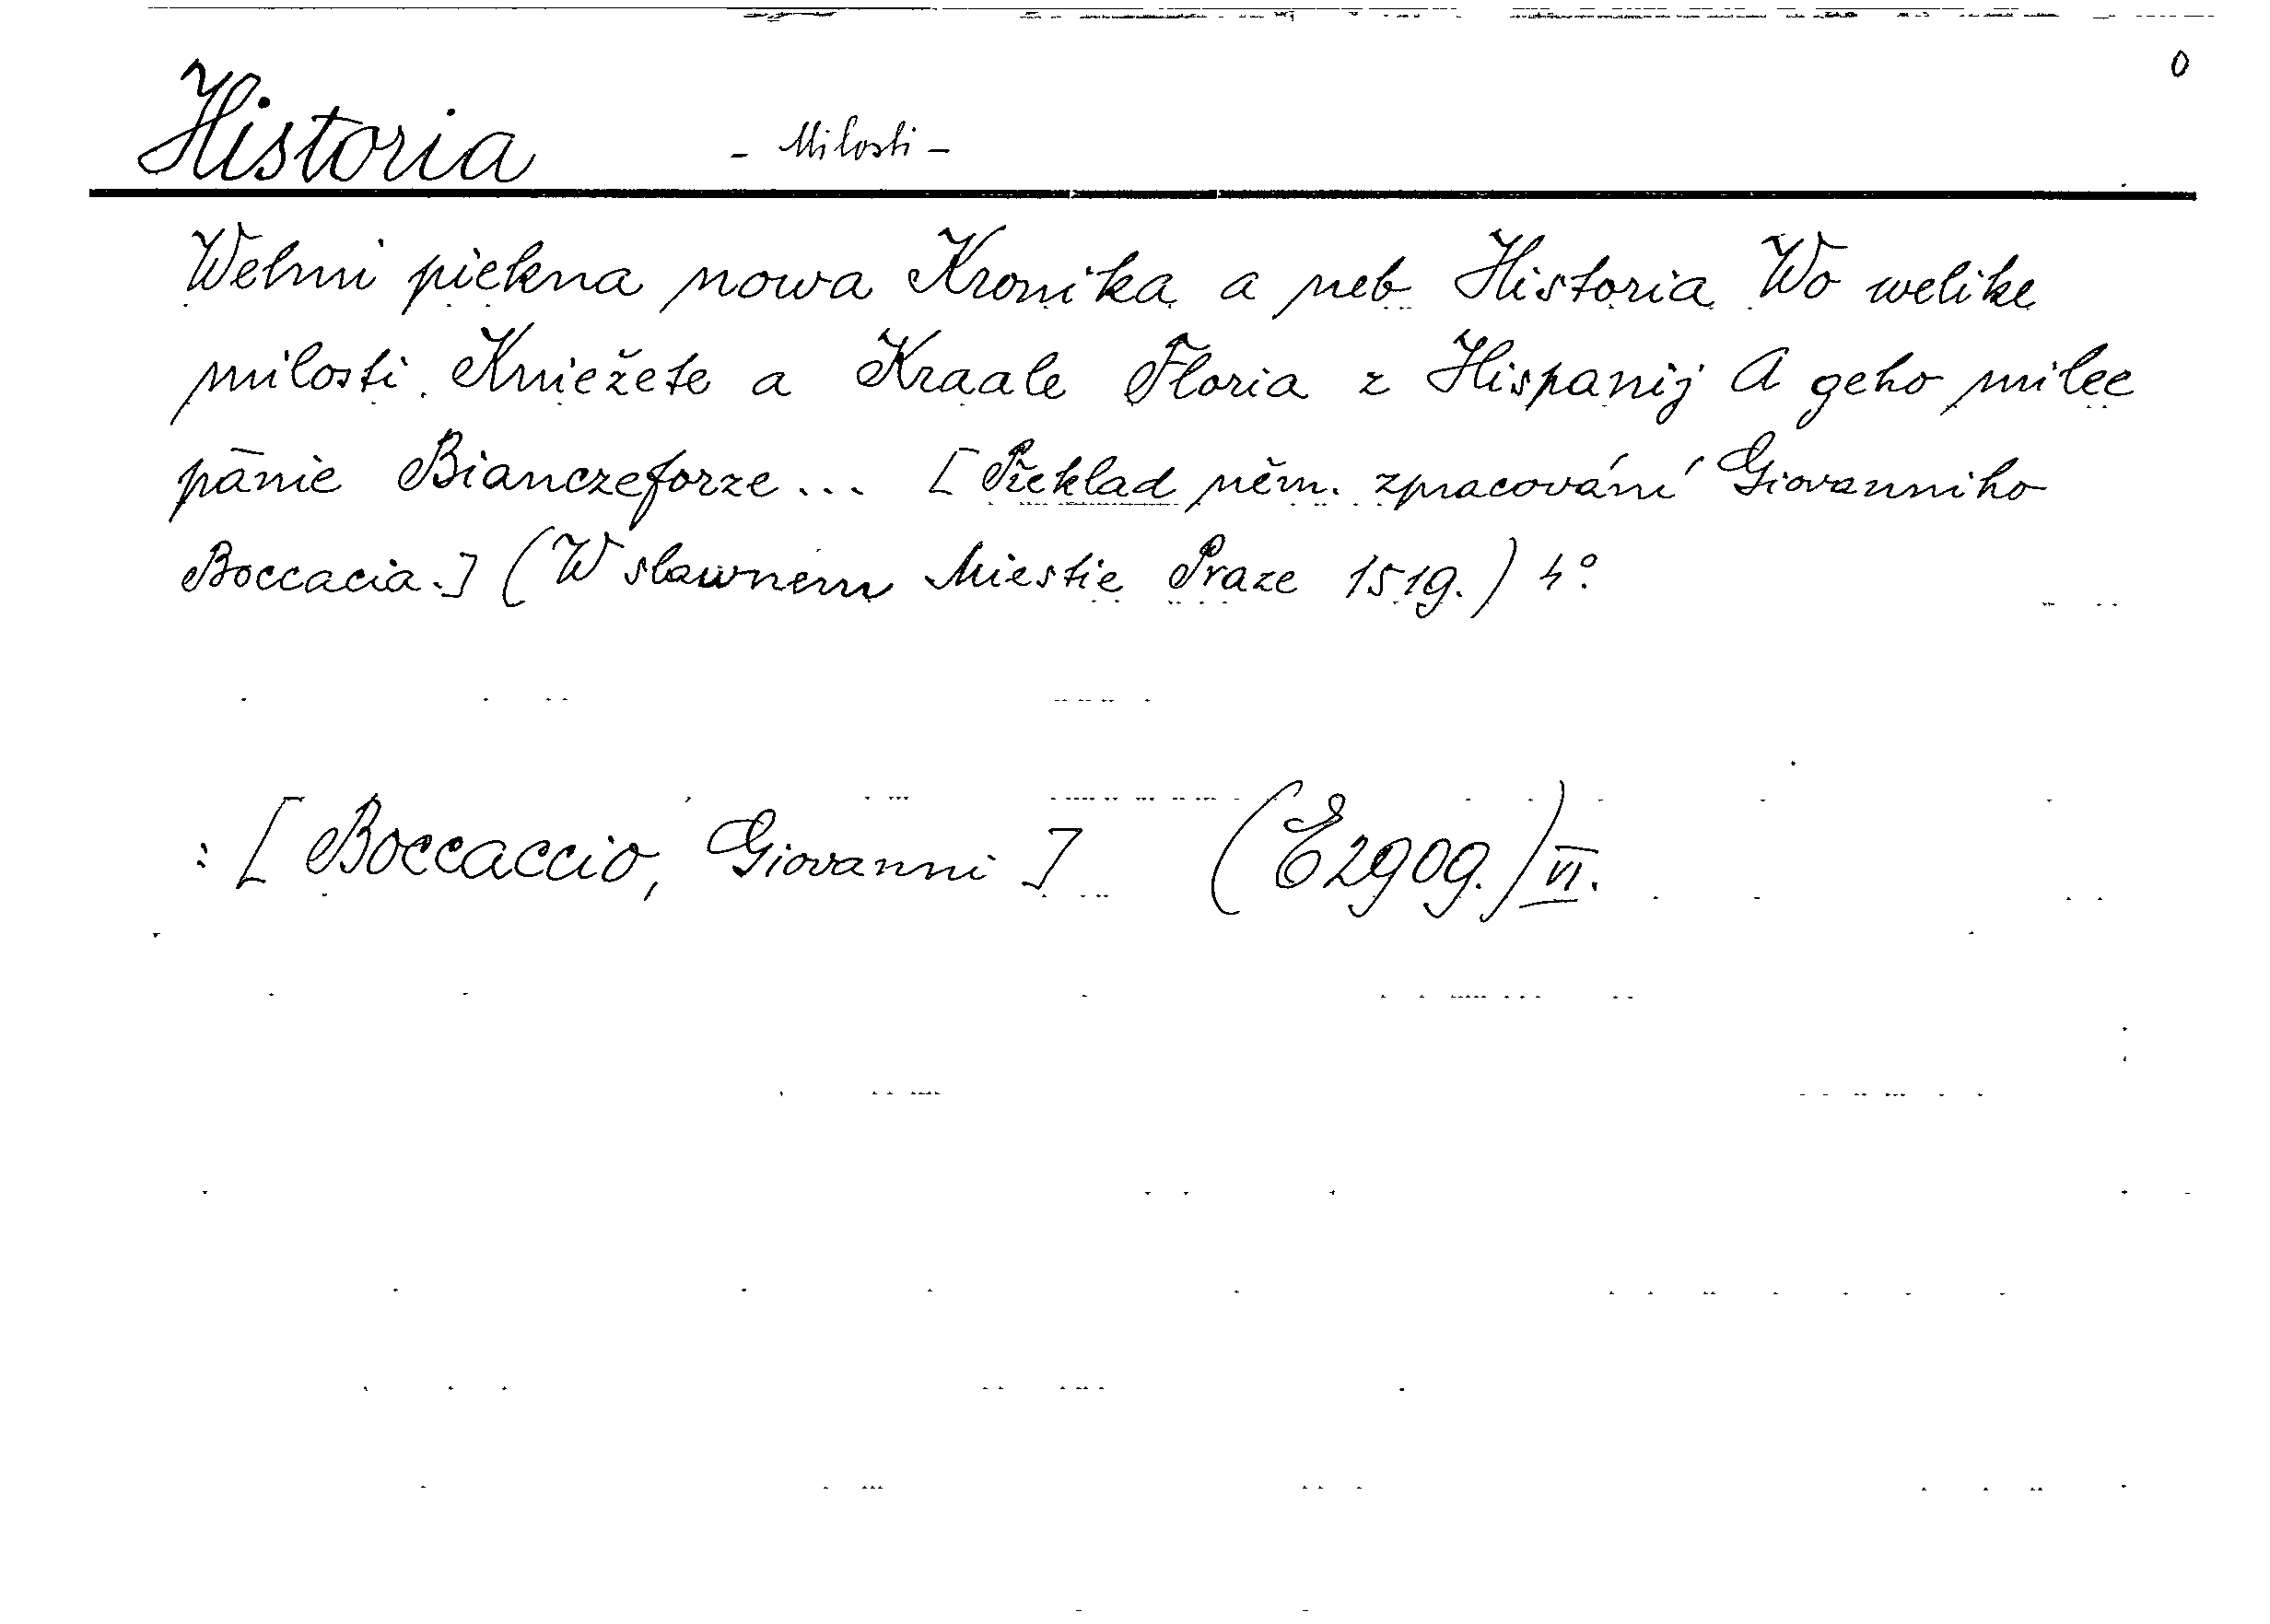 0
Historia - Milosti -
Welmi piekna nowa Kronika a neb Historia Wo welike
milosti Kniežete a Kraale Floria z Hispanij A geho milee
pānie Bianczeforze... [Překlad něm. zpracování Giovanniho
Boccacia.] (W slawnem Miestie Praze 1519.) 4°.
: [Boccaccio, Giovanni] (E2909.) VI.